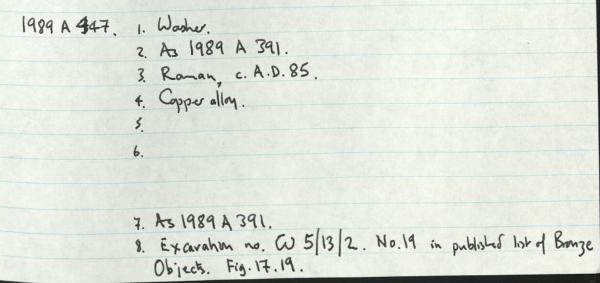 1989 A 447. 1. Washer.
2. As 1989 A 391.
3. Roman, c. A.D. 85.
4. Copper alloy.
5.
6.
7. As 1989 A 391.
8. Excavation no. CW 5/13/2. No. 19 in published list of Bronze
Objects. Fig. 17.19.